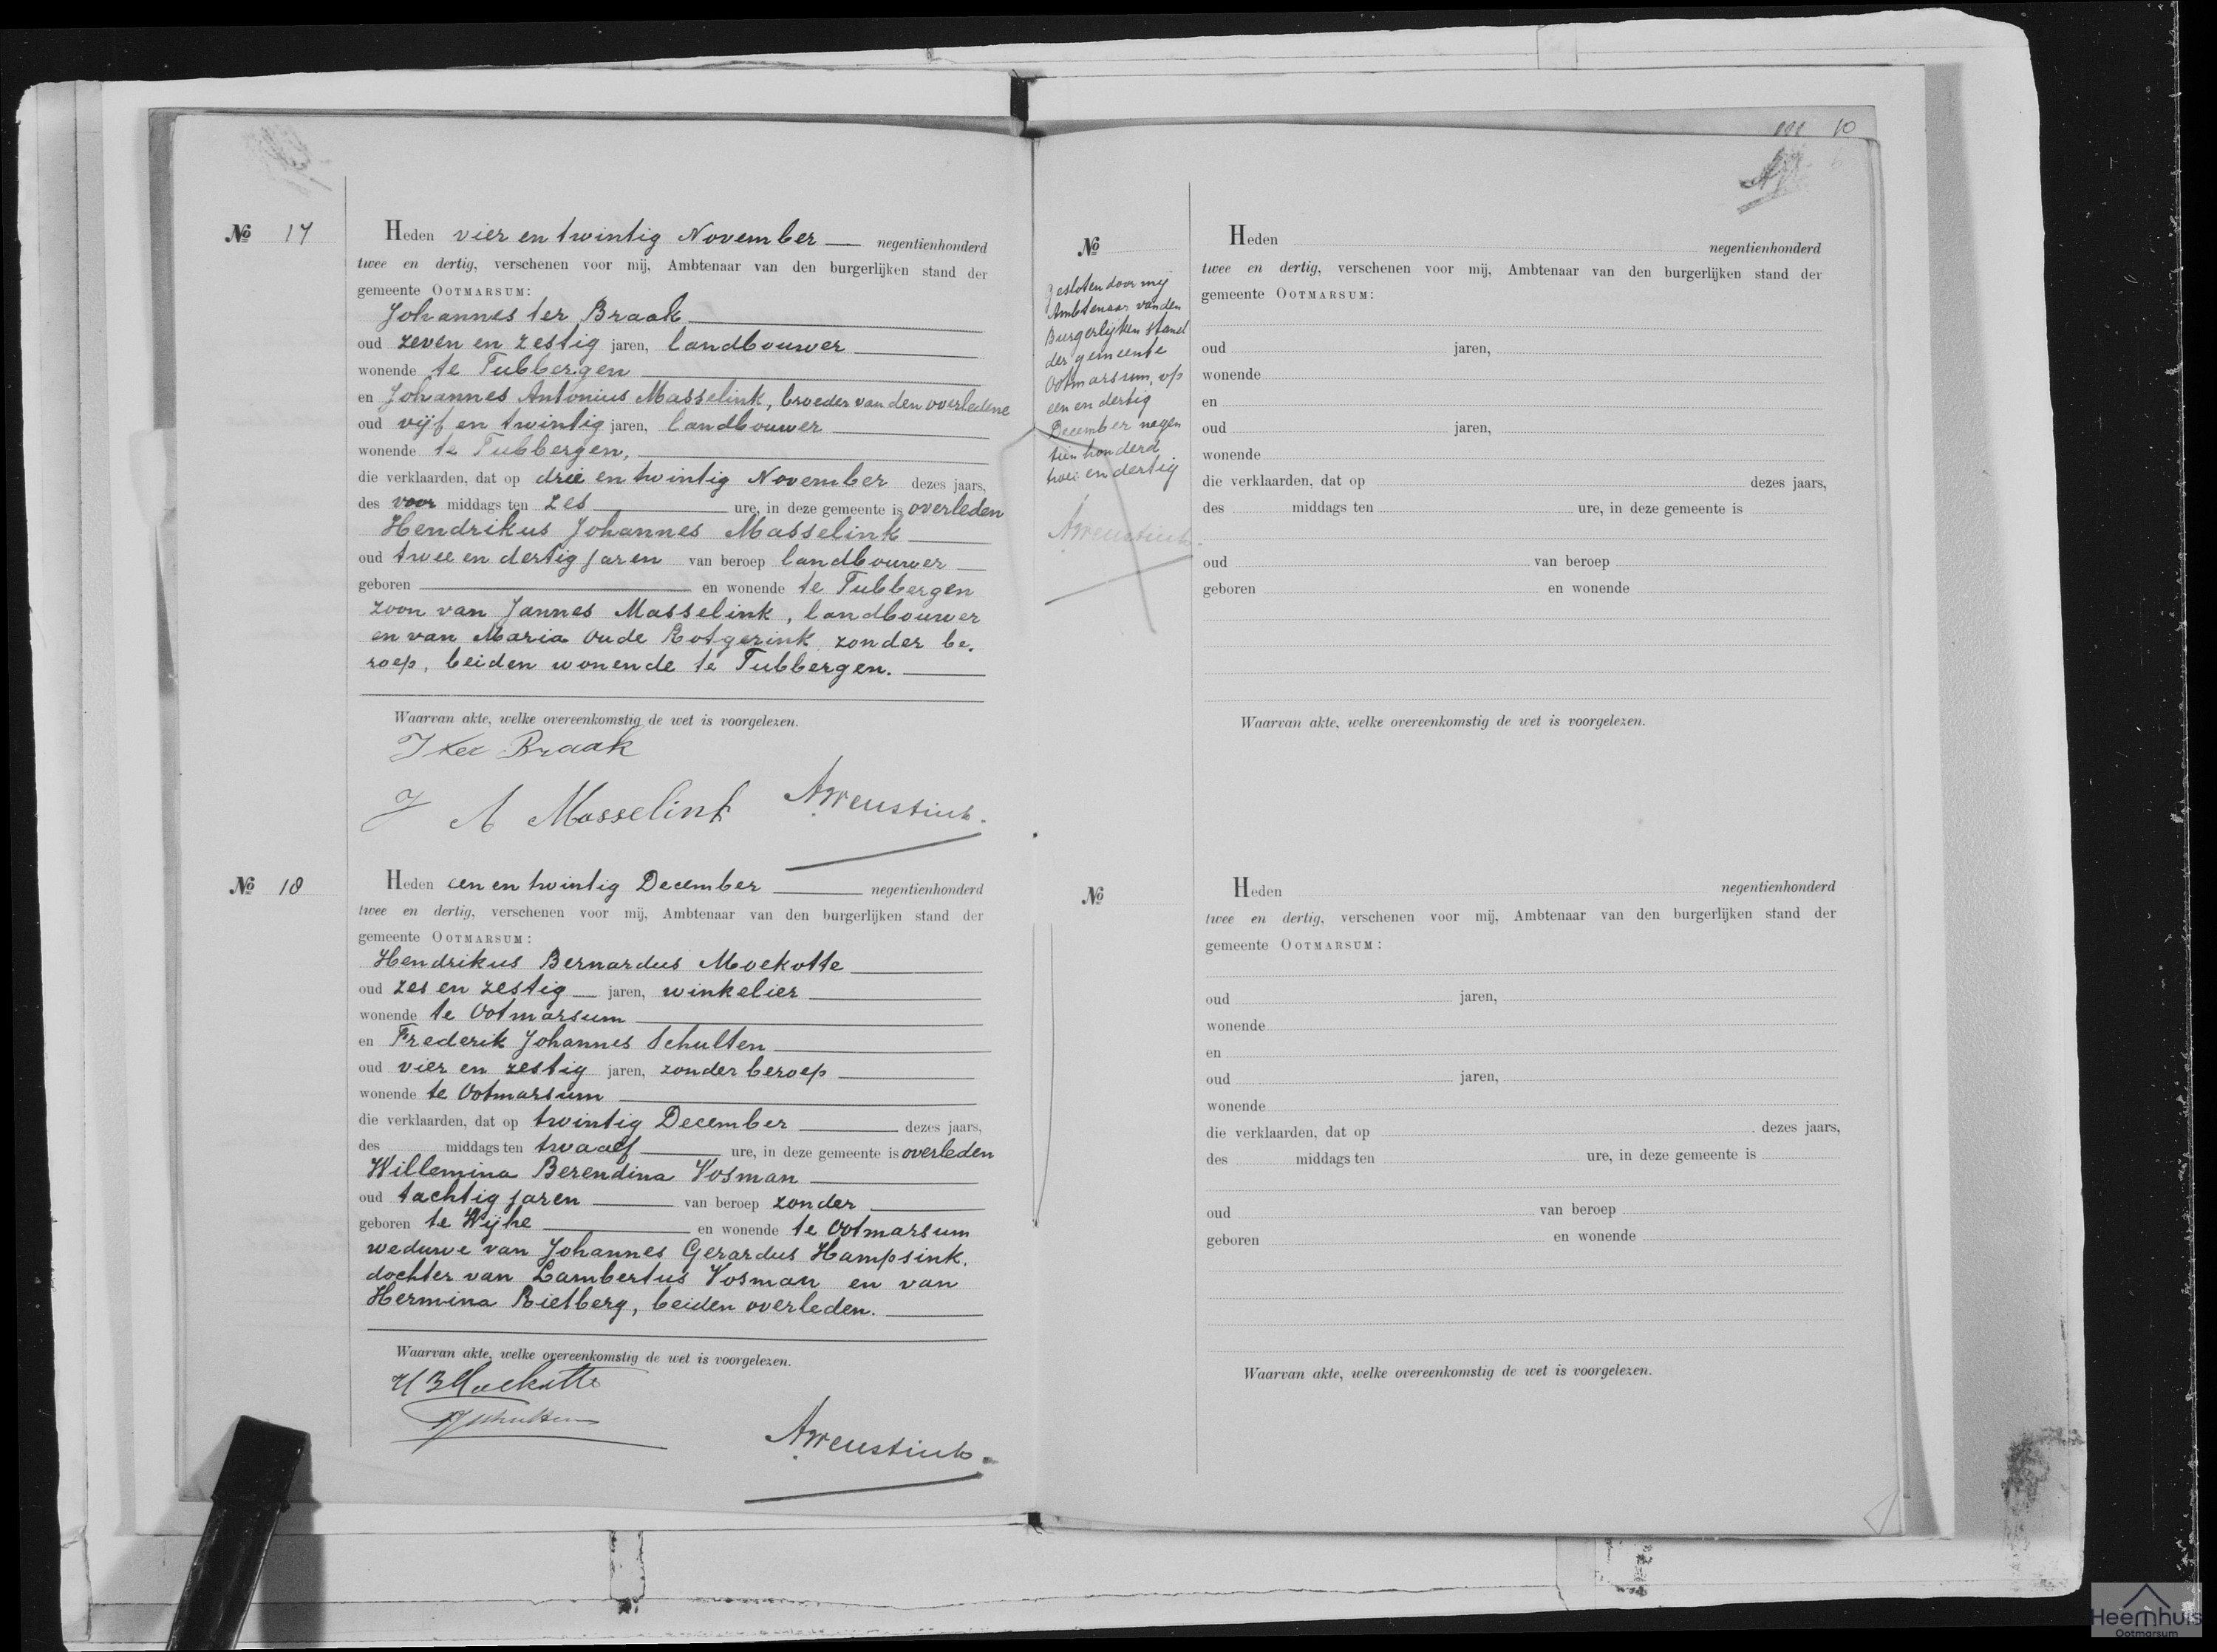 № 17
Heden vier en twintig November negentienhonderd
twee en dertig, verschenen voor mij, Ambtenaar van den burgerlijken stand der
gemeente OOTMARSUM:
Johannes ter Braak
oud zeven en zestig jaren, landbouwer
wonende te Tubbergen
en Johannes Antonius Masselink, broeder van den overledene
oud vijf en twintig jaren, landbouwer
wonende te Tubbergen,
die verklaarden, dat op drie en twintig November dezes jaars,
des voor middags ten zes ure, in deze gemeente is overleden
Hendrikus Johannes Masselink
oud twee en dertig jaren van beroep landbouwer
geboren en wonende te Tubbergen
zoon van Jannes Masselink, landbouwer
en van Maria oude Rotgerink zonder be.
roep, beiden wonende te Tubbergen.
Waarvan akte, welke overeenkomstig de wet is voorgelezen.
J ter Braak
J A Masselink
№ 18
Heden een en twintig December negentienhonderd
twee en dertig, verschenen voor mij, Ambtenaar van den burgerlijken stand der
gemeente OOTMARSUM:
Hendrikus Bernardus Mockotte
oud zes en zestig jaren, winkelier
wonende te Ootmarsum
en Frederik Johannes Schulten
oud vier en zestig jaren, zonder beroep
wonende te Ootmarsum
die verklaarden, dat op twintig December dezes jaars,
des middags ten twaalf ure, in deze gemeente is overleden
Willemina Berendina Vosman
oud tachtig jaren van beroep zonder
geboren te Wijhe en wonende te Ootmarsum
weduwe van Johannes Gerardus Hampsink,
dochter van Lambertus Vosman en van
Hermina Rietberg, beiden overleden.
Waarvan akte, welke overeenkomstig de wet is voorgelezen.
H B Mockotte
FJSchulten
10
№
Gesloten door mij
Ambtenaar van den
Burgerlijken stand
der gemeente
Ootmarsum, op
een en dertig
December negen
tien honderd
twee en dertig
Heden negentienhonderd
twee en dertig, verschenen voor mij, Ambtenaar van den burgerlijken stand der
gemeente OOTMARSUM:
oud jaren,
wonende
en
oud jaren,
wonende
die verklaarden, dat op dezes jaars,
des middags ten ure, in deze gemeente is
oud van beroep
geboren en wonende
Waarvan akte, welke overeenkomstig de wet is voorgelezen.
№
Heden negentienhonderd
twee en dertig, verschenen voor mij, Ambtenaar van den burgerlijken stand der
gemeente OOTMARSUM:
oud jaren,
wonende
en
oud jaren,
wonende
die verklaarden, dat op dezes jaars,
des middags ten ure, in deze gemeente is
oud van beroep
geboren en wonende
Waarvan akte, welke overeenkomstig de wet is voorgelezen.
Heemhuis
Ootmarsum